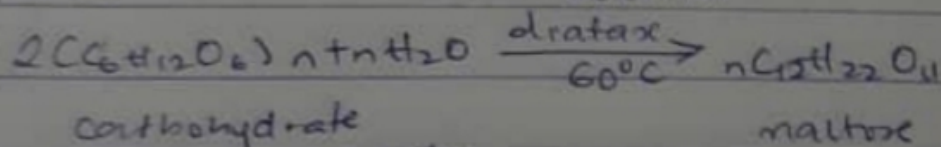 2(C₆H₁₂O₆)n + nH₂O diatax→ 60°C nC₁₂H₂₂O₁₁
carbohydrate maltose